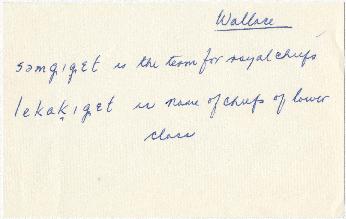 Wallace
səmg̣ig̣ɛt is the term for royal chiefs
lekaḳig̣ɛt is name of chiefs of lower
class